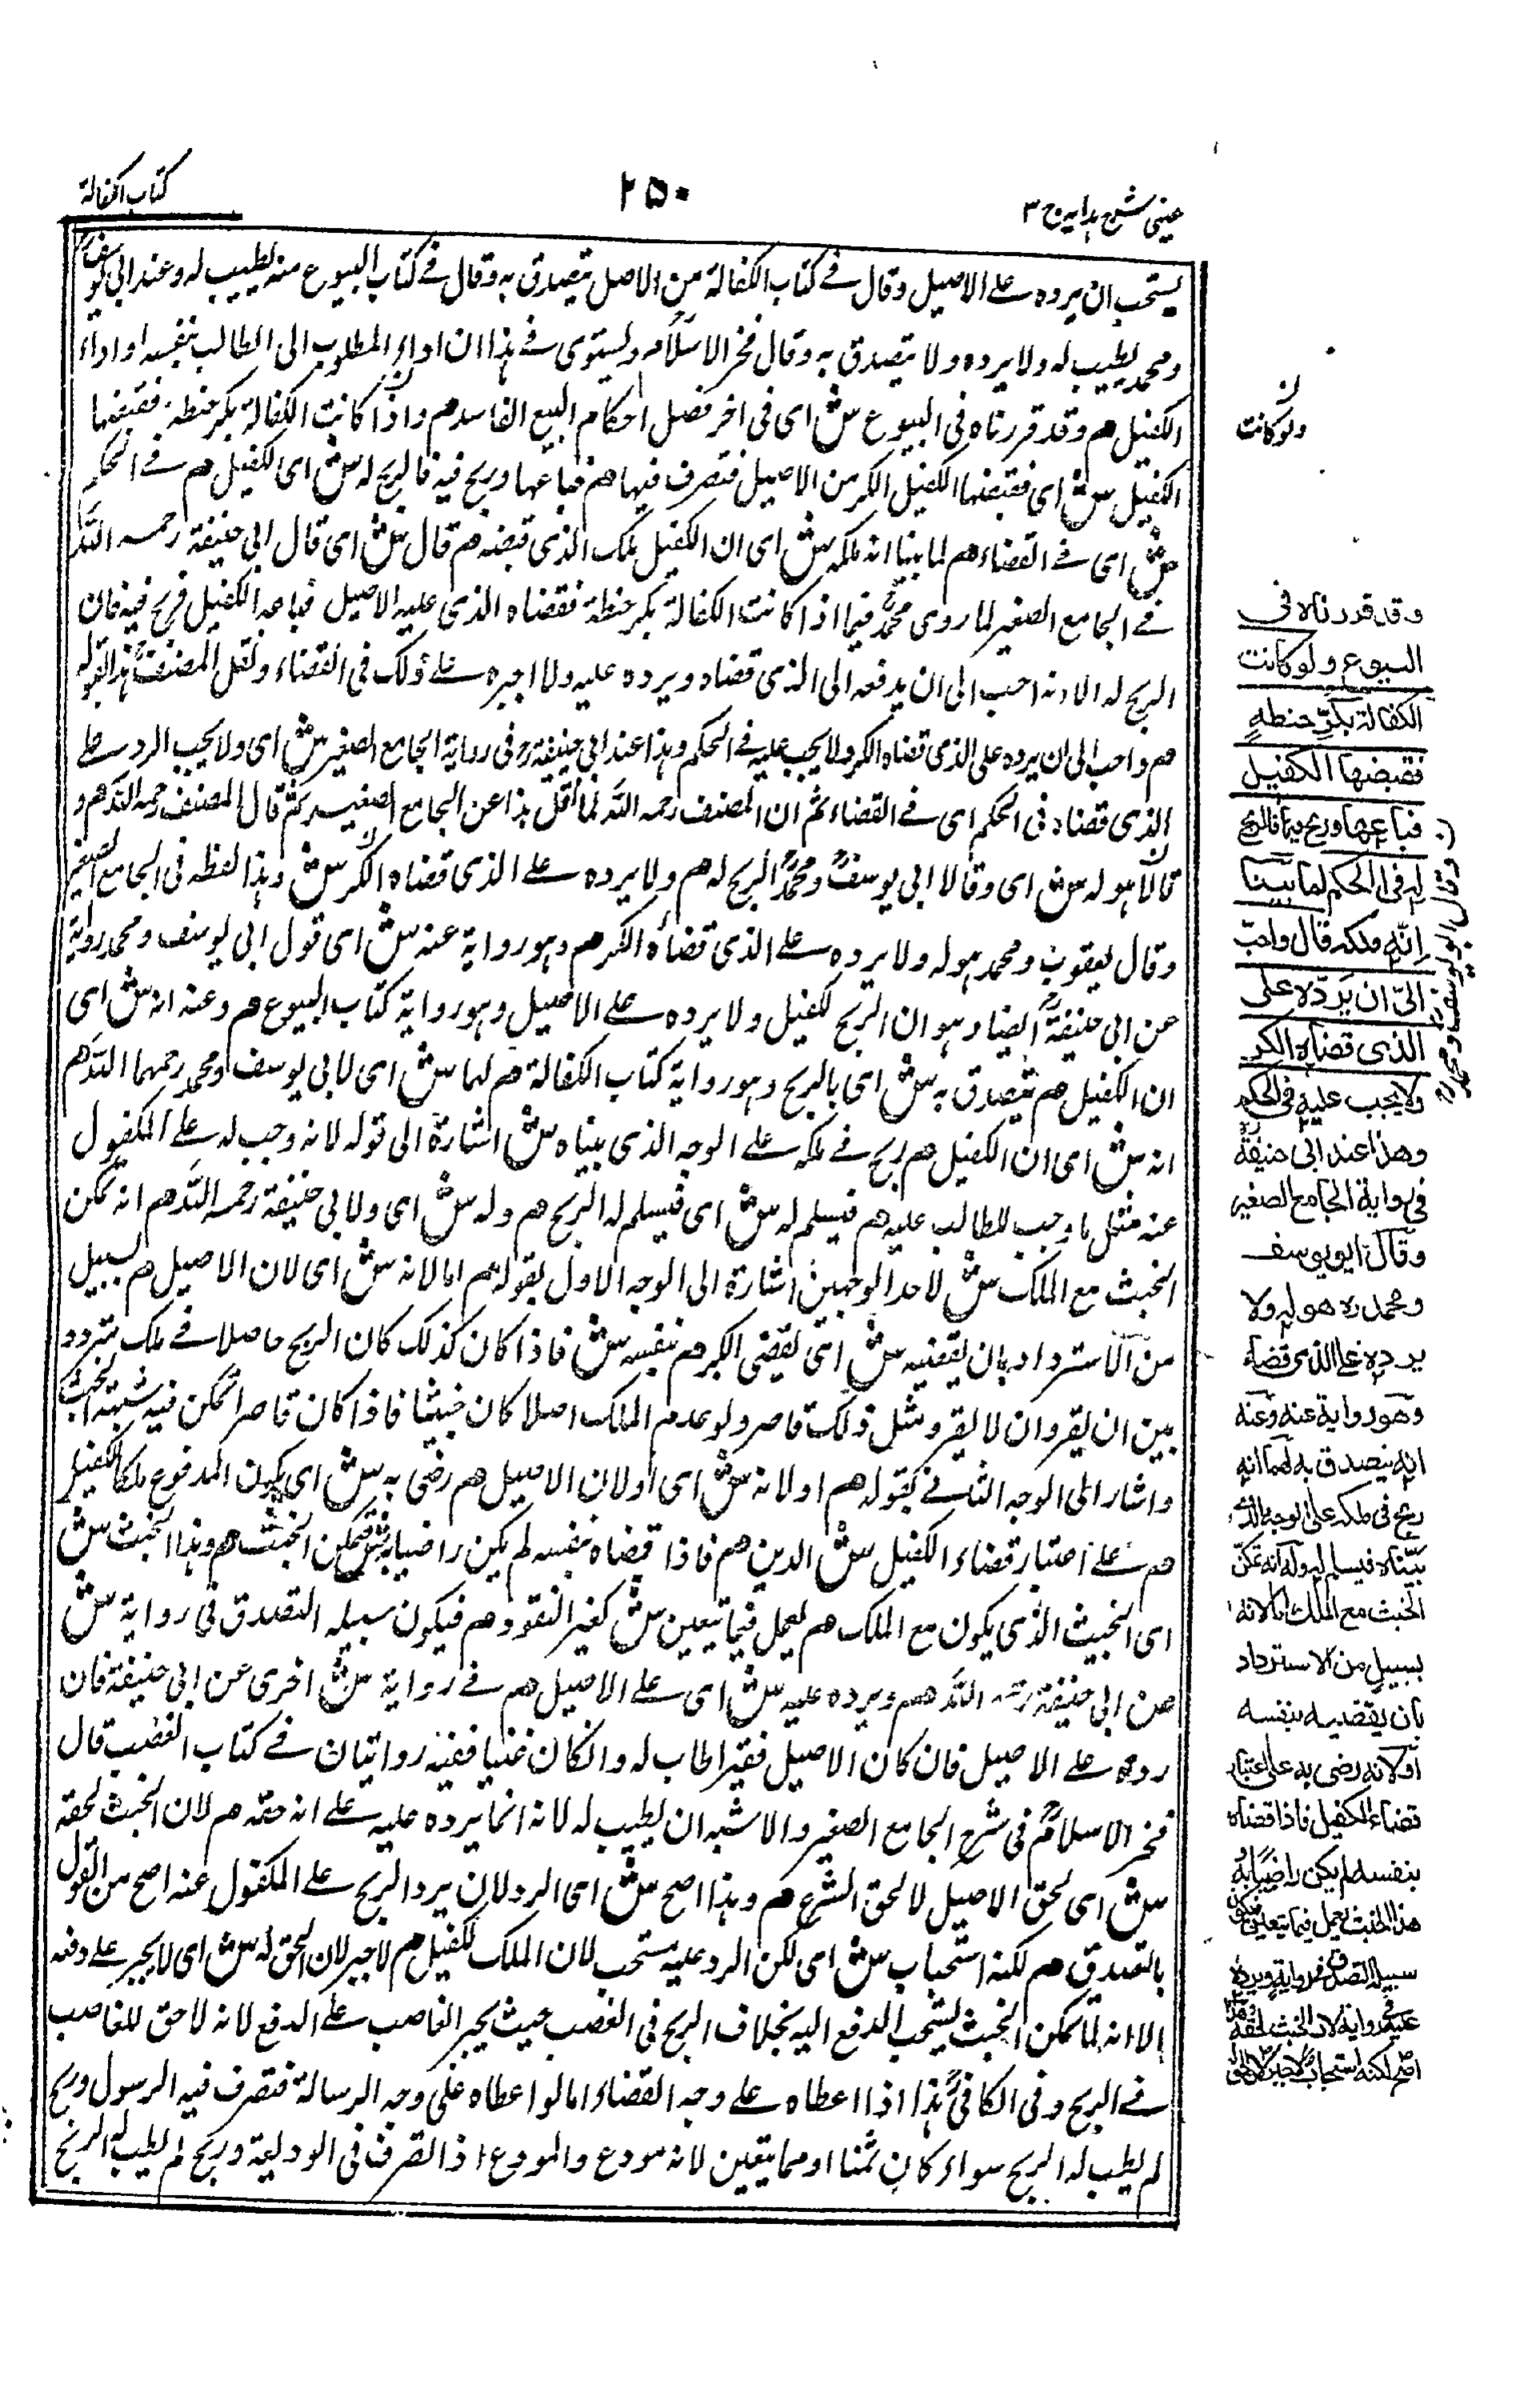 عينى شرح هدايه ج ٣
٢٥٠
كتاب الكفالة
يستحب ان يرده على الاصيل وقال فى كتاب الكفالة من الاصل يتصدق به وقال فى كتاب البيوع منه يطيب له وعند ابى يوسف
ومحمد يطيب له ولا يرده ولا يتصدق به وقال فخر الاسلام ويستوى فى هذا ان اداء المطلوب الى الطالب بنفسه او اداء
الكفيل هم وقد قررناه فى البيوع ش اى فى اخر فصل احكام البيع الفاسد هم واذا كانت الكفالة بكر حنطة فقبضها
الكفيل ش اى فقبضها الكفيل الكر من الاصيل فتصرف فيها هم فباعها وربح فيه فالربح له ش اى للكفيل هم فى الحكم
ش اى فى القضاء هم لما بينا انه ملكه ش اى ان الكفيل ملك الذى قبضه هم قال ش اى قال ابى حنيفة رحمه الله
فى الجامع الصغير لما روى محمد فيما اذا كانت الكفالة بكر حنطة فقضاه الذى عليه الاصيل فباعه الكفيل فربح فيه فان
الربح له الا انه احب الى ان يدفعه الى الذى قضاه ويرده عليه ولا اجبره على ذلك فى القضاء ونقل المصنف هذا بقوله
هم واحب الى ان يرده على الذى قضاه الكر ولا يجب عليه فى الحكم وهذا عند ابى حنيفة فى رواية الجامع الصغير ش اى ولا يجب الرد على
الذى قضاه فى الحكم اى فى القضاء ثم ان المصنف رحمه الله لما نقل هذا عن الجامع الصغير ثم قال المصنف رحمه الله هم و
قالا هو له ش اى وقالا ابى يوسف ومحمد الربح له هم ولا يرده على الذى قضاه الكر ش وهذا لفظه فى الجامع الصغير
وقال يعقوب ومحمد هو له ولا يرده على الذى قضاه الكر هم وهو رواية عنه ش اى قول ابى يوسف ومحمد رواية
عن ابى حنيفة ايضا وهو ان الربح للكفيل ولا يرده على الاصيل وهو رواية كتاب البيوع هم وعنه انه ش اى
ان الكفيل هم يتصدق به ش اى بالربح وهو رواية كتاب الكفالة هم لهما ش اى لابى يوسف ومحمد رحمهما الله هم
انه ش اى ان الكفيل هم ربح فى ملكه على الوجه الذى بيناه ش اشارة الى قوله لانه وجب له على المكفول
عنه مثل ما وجب للطالب عليه هم فيسلم له ش اى فيسلم له الربح هم وله ش اى ولابى حنيفة رحمه الله هم انه تمكن
الخبث مع الملك ش لاحد الوجهين اشارة الى الوجه الاول بقوله هم اما لانه ش اى لان الاصيل هم بسبيل
من الاسترداد بان يقضيه ش اى يقضى الكر هم بنفسه ش فاذا كان كذلك كان الربح حاصلا فى ملك متردد
بين ان يقر وان لا يقر ومثل ذلك قاصر ولو عدم الملك اصلا كان خبيثا فاذا كان قاصرا تمكن فيه شبهة الخبث
واشار الى الوجه الثانى بقوله هم او لانه ش اى او لان الاصيل هم رضى به ش اى يكون المدفوع ملكا للكفيل
هم على اعتبار قضاء الكفيل ش الدين هم فاذا قضاه بنفسه لم يكن راضيا به ش فتمكن الخبث هم وهذا الخبث ش
اى الخبيث الذى يكون مع الملك هم يعمل فيما يتعين ش كغير النقود هم فيكون سبيله التصدق فى رواية ش
عن ابى حنيفة رحمه الله هم ويرده عليه ش اى على الاصيل هم فى رواية ش اخرى عن ابى حنيفة فان
رده على الاصيل فان كان الاصيل فقيرا طاب له وان كان غنيا ففيه روايتان فى كتاب الغصب قال
فخر الاسلام فى شرح الجامع الصغير والاشبه ان يطيب له لانه انما يرده عليه على انه حقه هم لان الخبث لحقه
ش اى لحق الاصيل لا لحق الشرع هم وهذا اصح ش اى الرد لان يرد الربح على المكفول عنه اصح من القول
بالتصدق هم لكنه استحباب ش اى لكن الرد عليه مستحب لان الملك للكفيل هم لا جبر لان الحق له ش اى لا يجبر على دفعه
الا انه لما تمكن الخبث يستحب الدفع اليه بخلاف الربح فى الغصب حيث يجبر الغاصب على الدفع لانه لا حق للغاصب
فى الربح وفى الكافى هذا اذا اعطاه على وجه القضاء اما لو اعطاه على وجه الرسالة فتصرف فيه الرسول وربح
لم يطب له الربح سواء كان ثمنا او مما يتعين لانه مودع والمودع اذا تصرف فى الوديعة وربح لم يطب له الربح
ولو كانت
وقد قررناه فى
البيوع ولو كانت
الكفالة بكرّ حنطةٍ
فقبضها الكفيل
فباعها وربح فيها فالربح
له فى الحكم لما بينا
انه ملكه قال واحبّ
الىّ ان يردّه على
الذى قضاه الكر
ولا يجب عليه فى الحكم
وهذا عند ابى حنيفة
فى رواية الجامع الصغير
وقال ابو يوسف
ومحمد ره هو له ولا
يرده على الذى قضاه
وهو رواية عنه وعنه
انه يتصدق به لهما انه
ربح فى ملكه على الوجه الذى
بيّناه فيسلم له وله انه تمكن
الخبث مع الملك اما لانه
بسبيل من الاسترداد
بان يقضيه بنفسه
او لانه رضى به على اعتبار
قضاء الكفيل فاذا قضاه
بنفسه لم يكن راضيًا به و
هذا الخبث يعمل فيما يتعين فيكون
سبيله التصدق فى رواية ويرده
عليه فى رواية لان الخبث لحقه وهذا
اصح لكنه استحباب لا جبر لان الحق له
وقال ابو يوسف ومحمد